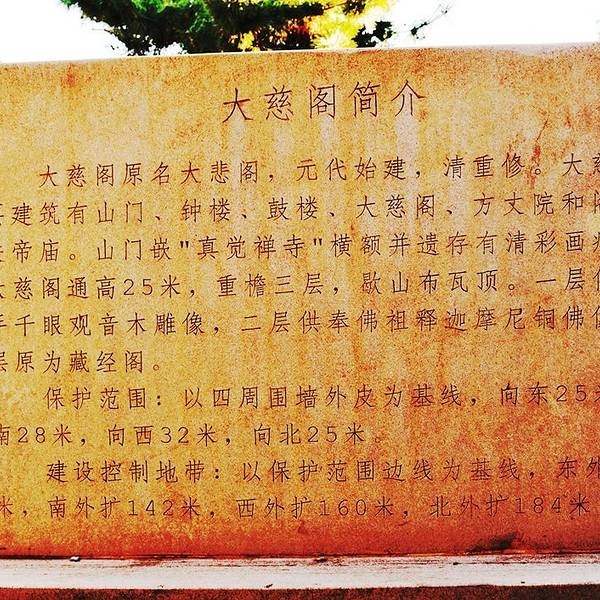 大慈阁简介
大慈阁原名大悲阁，元代始建，清重修。大慈
要建筑有山门、钟楼、鼓楼、大慈阁、方丈院和
帝庙。山门嵌"真觉禅寺"横额并遗存有清彩画
大慈阁通高25米，重檐三层，歇山布瓦顶。一层供
手千眼观音木雕像，二层供奉佛祖释迦摩尼铜佛像
层原为藏经阁。
保护范围：以四周围墙外皮为基线，向东25米
南28米，向西32米，向北25米。
建设控制地带：以保护范围边线为基线，东外
米，南外扩142米，西外扩160米，北外扩184米